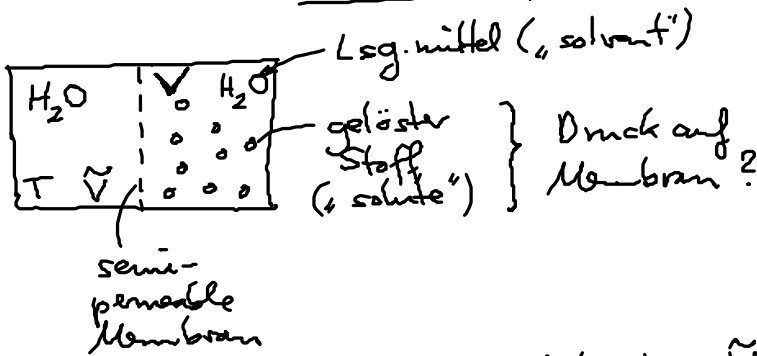 Lsg.mittel („solvent“)
H₂O V H₂O
gelöster
Stoff
(„solute“)
Druck auf
Membran ?
T Ṽ
semi-
permeable
Membran